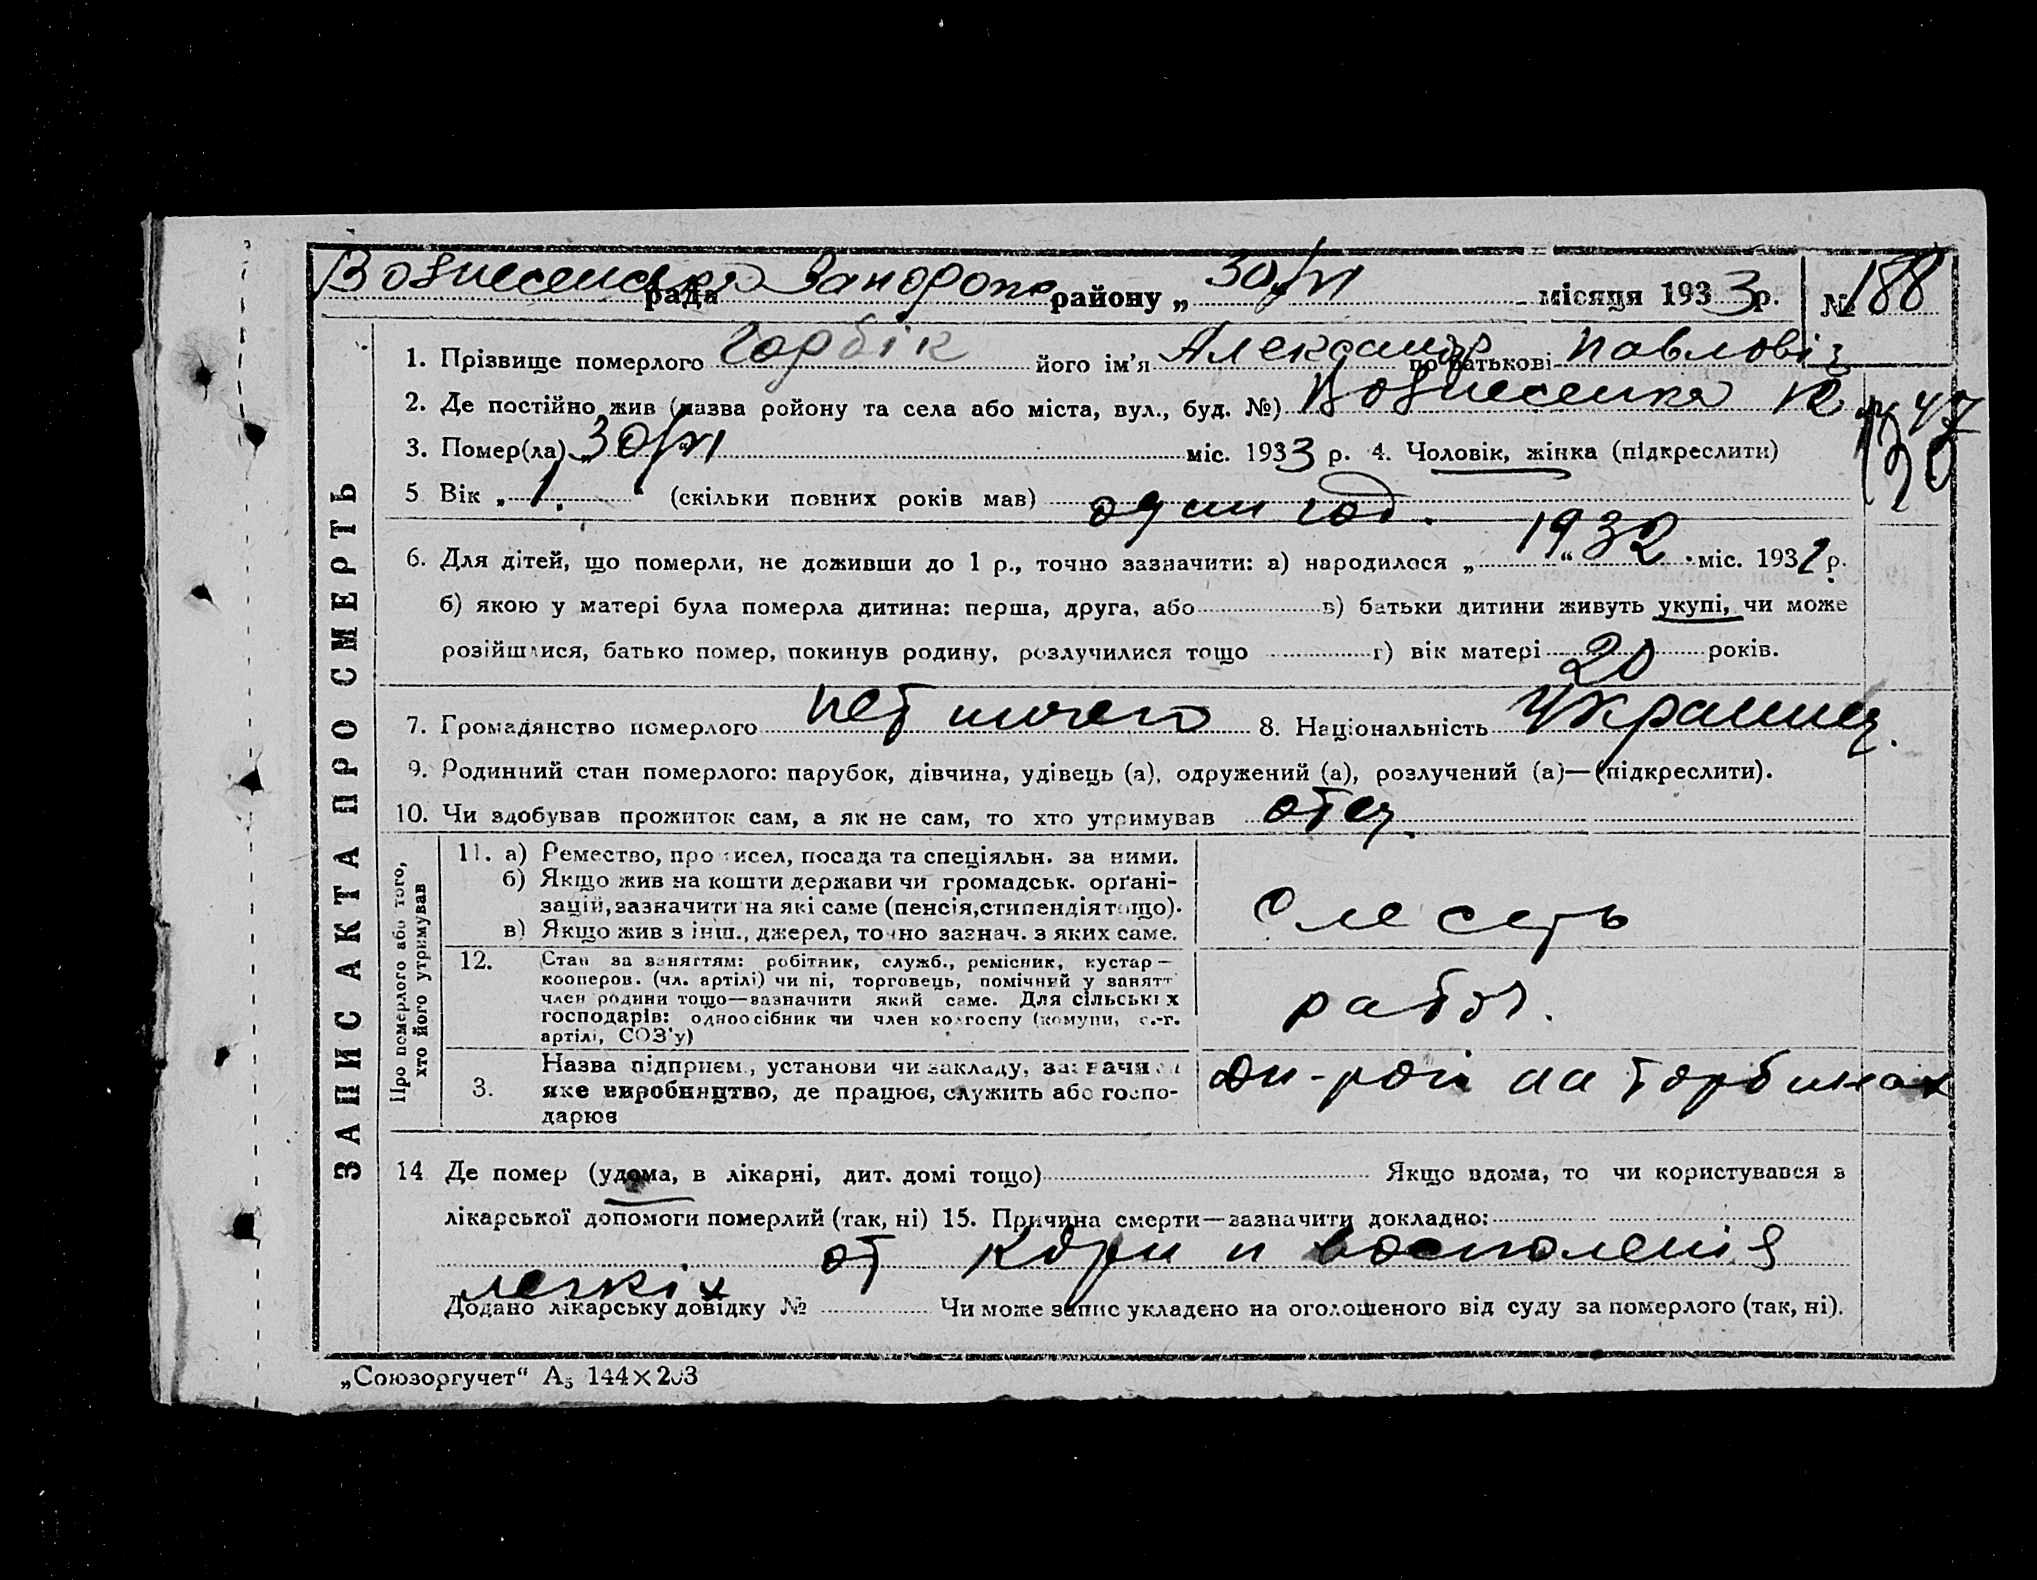 Вознесенська рада Запорож району „ 30/VI місяця 1933 р. № 188
1. Прізвище померлого Горбік його ім’я Александр по батькові Павловіч
2. Де постійно жив (назва ройону та села або міста, вул., буд. №) Вознесенка
3. Помер(ла) „ 30/VI міс. 1933 р. 4. Чоловік, жінка (підкреслити)
5 Вік „ 1. “ (скільки повних років мав) один год.
6. Для дітей, що померли, не доживши до 1 р., точно зазначити: а) народилося „ 1932 “ міс. 1932 р.
б) якою у матері була померла дитина: перша, друга, або в) батьки дитини живуть укупі, чи може
розійшлися, батько помер, покинув родину, розлучилися тощо г) вік матері 20 років.
7. Громадянство померлого нет 8. Національність Украинец.
9. Родинний стан померлого: парубок, дівчина, удівець (а), одружений (а), розлучений (а)—(підкреслити).
10. Чи здобував прожиток сам, а як не сам, то хто утримував отец.
ЗАПИС АКТА ПРО СМЕРТЬ
Про померлого або того,
хто його утримував
11. а) Ремество, промисел, посада та спеціяльн. за ними.
б) Якщо жив на кошти держави чи громадськ. орґані-
зацій, зазначити на які саме (пенсія, стипендія тощо).
в) Якщо жив з інш., джерел, точно зазнач. з яких саме.
Слесарь
12. Стан за заняттям: робітник, служб., ремісник, кустар—
кооперов. (чл. артілі) чи ні, торговець, помічний у занятт
член родини тощо—зазначити який саме. Для сільських
господарів: одноосібник чи член колгоспу (комуни, с.-г.
артілі, СОЗ’у)
рабоч.
3. Назва підприєм., установи чи закладу, зазначи
яке виробництво, де працює, служить або госпо-
дарює
на торбинах
14 Де помер (удома, в лікарні, дит. домі тощо) Якщо вдома, то чи користувався в
лікарської допомоги померлий (так, ні) 15. Причина смерти—зазначити докладно:
от кори и воспаления
легкіх
Додано лікарську довідку № Чи може запис укладено на оголошеного від суду за померлого (так, ні).
„Союзоргучет“ А5 144×203